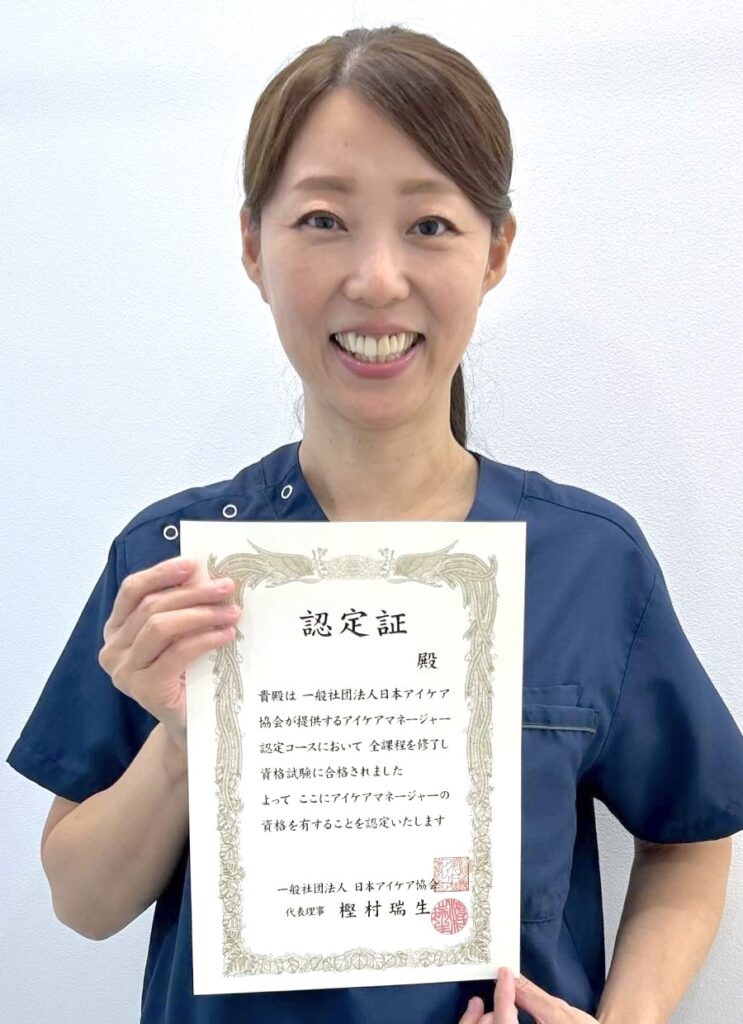 認定証
殿
貴殿は 一般社団法人日本アイケア
協会が提供するアイケアマネージャー
認定コースにおいて 全課程を修了し
資格試験に合格されました
よって ここにアイケアマネージャーの
資格を有することを認定いたします
一般社団法人 日本アイケア協会
代表理事 樫村瑞生